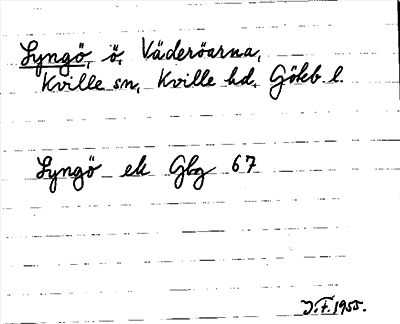 Lyngö, ö, Väderöarna,
Kville sn, Kville hd, Göteb. l.
Lyngö ek Gbg 67
J.F. 1955.